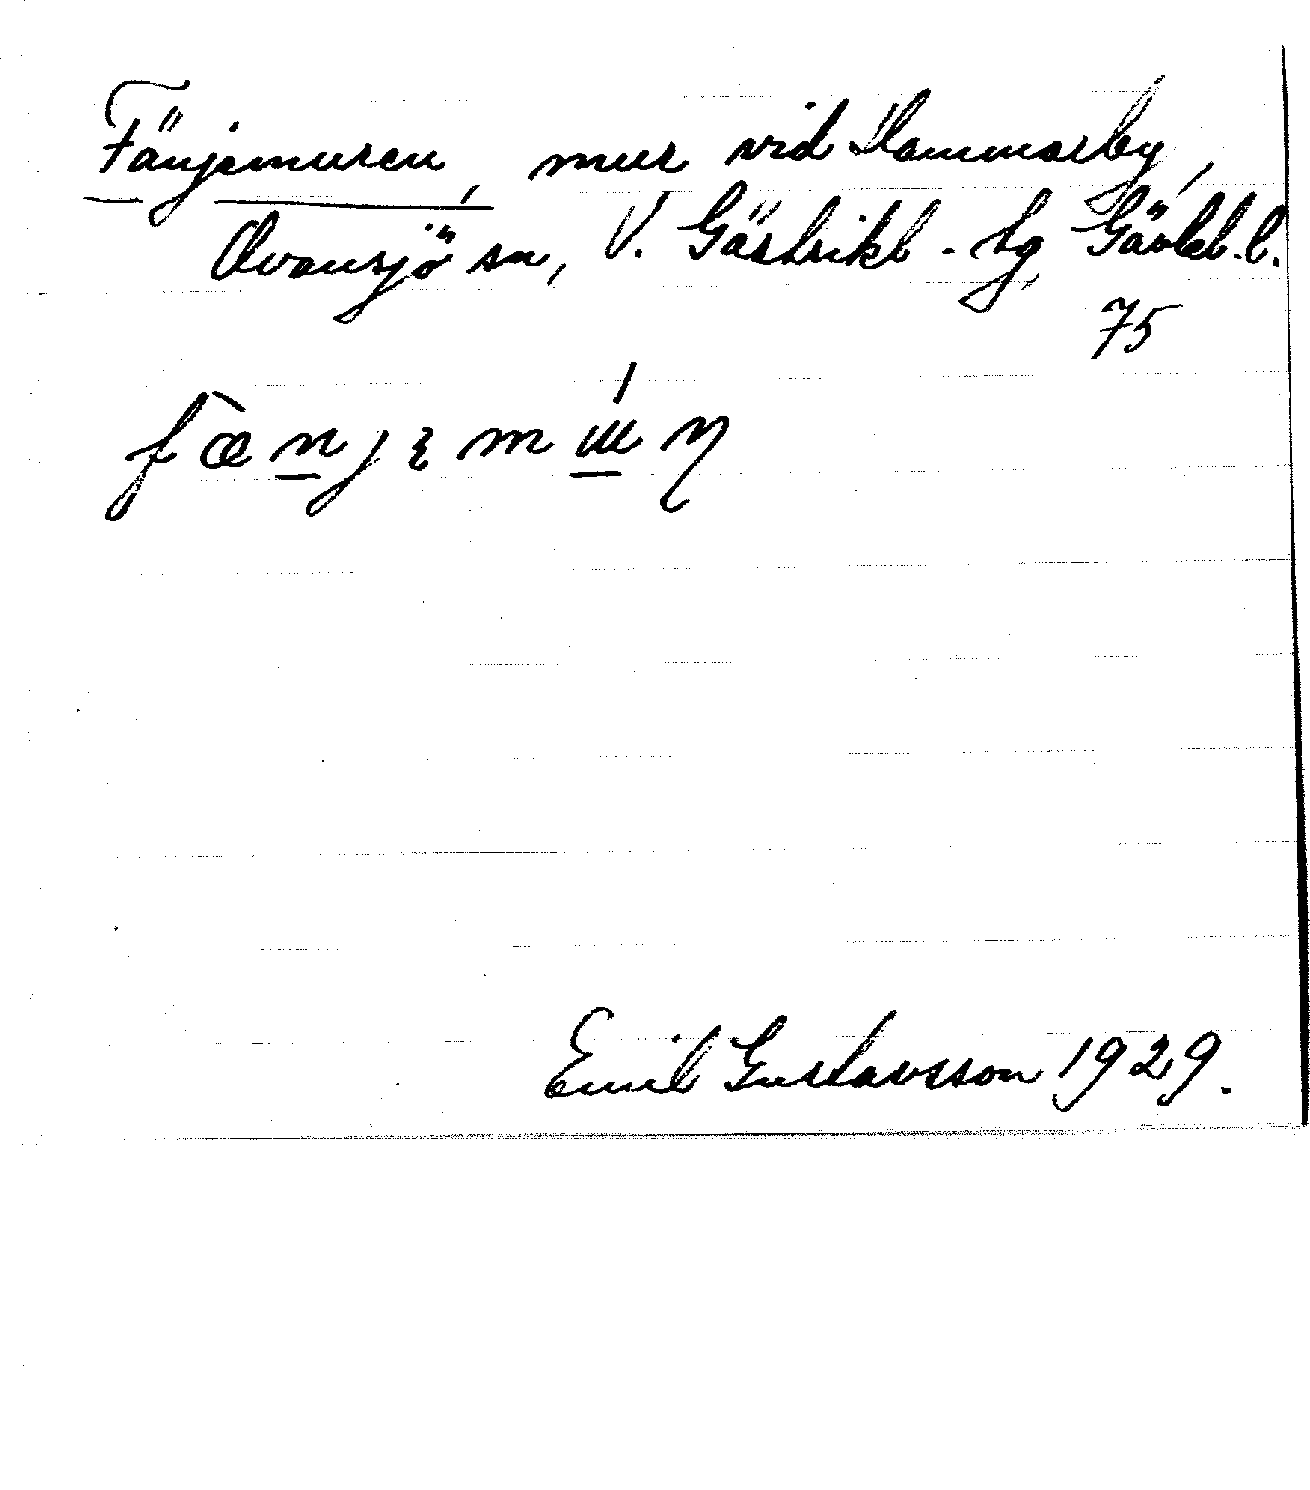 Fänjemuren, mur vid Hammarby,
Ovansjö sn, V. Gästrikl. tg, Gävleb. l.
75
fænjɛmɯ́n
Emil Gustavsson 1929.